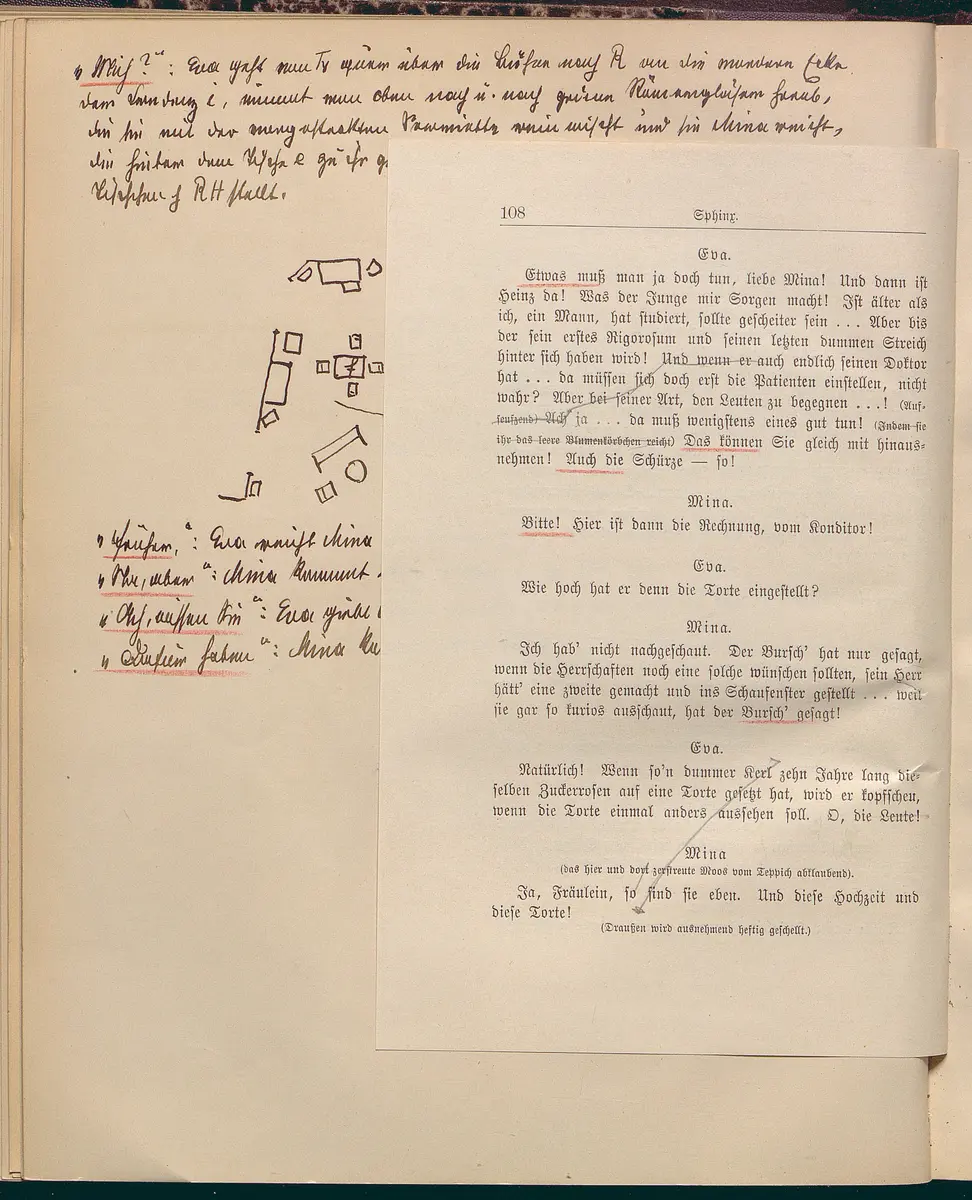 „Mich?“: Eva geht von Tr quer über die Bühne nach R an die vordere Ecke
der Kredenz i, nimmt von oben nach u. nach grüne Römergläser herab,
die sie mit der Serviette rein wischt und sie Mina reicht,
die hinter dem Tische e zu ihr
Tischchen f RH stellt.
f
„früher,“: Eva reicht Mina
aber“: Mina kommt
„Ach, wissen Sie“: Eva
haben“: Mina
108 Sphinx.
Eva.
Etwas muß man ja doch tun, liebe Mina! Und dann ist
Heinz da! Was der Junge mir Sorgen macht! Ist älter als
ich, ein Mann, hat studiert, sollte gescheiter sein ... Aber bis
der sein erstes Rigorosum und seinen letzten dummen Streich
hinter sich haben wird! Und wenn er auch endlich seinen Doktor
hat ... da müssen sich doch erst die Patienten einstellen, nicht
wahr? Aber bei seiner Art, den Leuten zu begegnen ...! (Auf-
seufzend) Ach ja ... da muß wenigstens eines gut tun! (Indem sie
ihr das leere Blumenkörbchen reicht) Das können Sie gleich mit hinaus-
nehmen! Auch die Schürze — so!
Mina.
Bitte! Hier ist dann die Rechnung, vom Konditor!
Eva.
Wie hoch hat er denn die Torte eingestellt?
Mina.
Ich hab' nicht nachgeschaut. Der Bursch' hat nur gesagt,
wenn die Herrschaften noch eine solche wünschen sollten, sein Herr
hätt' eine zweite gemacht und ins Schaufenster gestellt ... weil
sie gar so kurios ausschaut, hat der Bursch' gesagt!
Eva.
Natürlich! Wenn so'n dummer Kerl zehn Jahre lang die-
selben Zuckerrosen auf eine Torte gesetzt hat, wird er kopfscheu,
wenn die Torte einmal anders aussehen soll. O, die Leute!
Mina
(das hier und dort zerstreute Moos vom Teppich abklaubend).
Ja, Fräulein, so sind sie eben. Und diese Hochzeit und
diese Torte!
(Draußen wird ausnehmend heftig geschellt.)